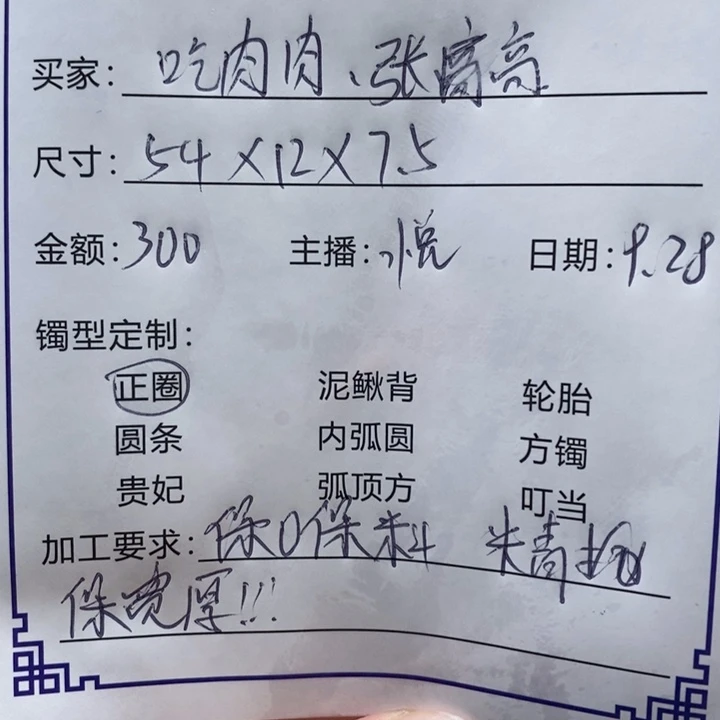 买家: 吃肉肉、张高高
尺寸: 54×12×7.5
金额: 300 主播: 小悦 日期: 9.28
镯型定制:
正圈 泥鳅背 轮胎
圆条 内弧圆 方镯
贵妃 弧顶方 叮当
加工要求: 保0保料
保宽厚!!!